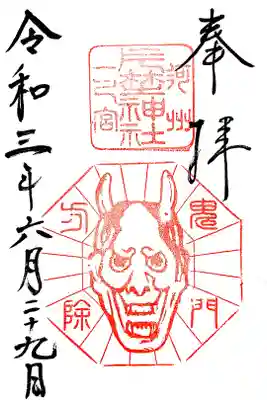 奉拝
河州
片埜神社
一之宮
鬼門
方除
令和三年六月二十九日